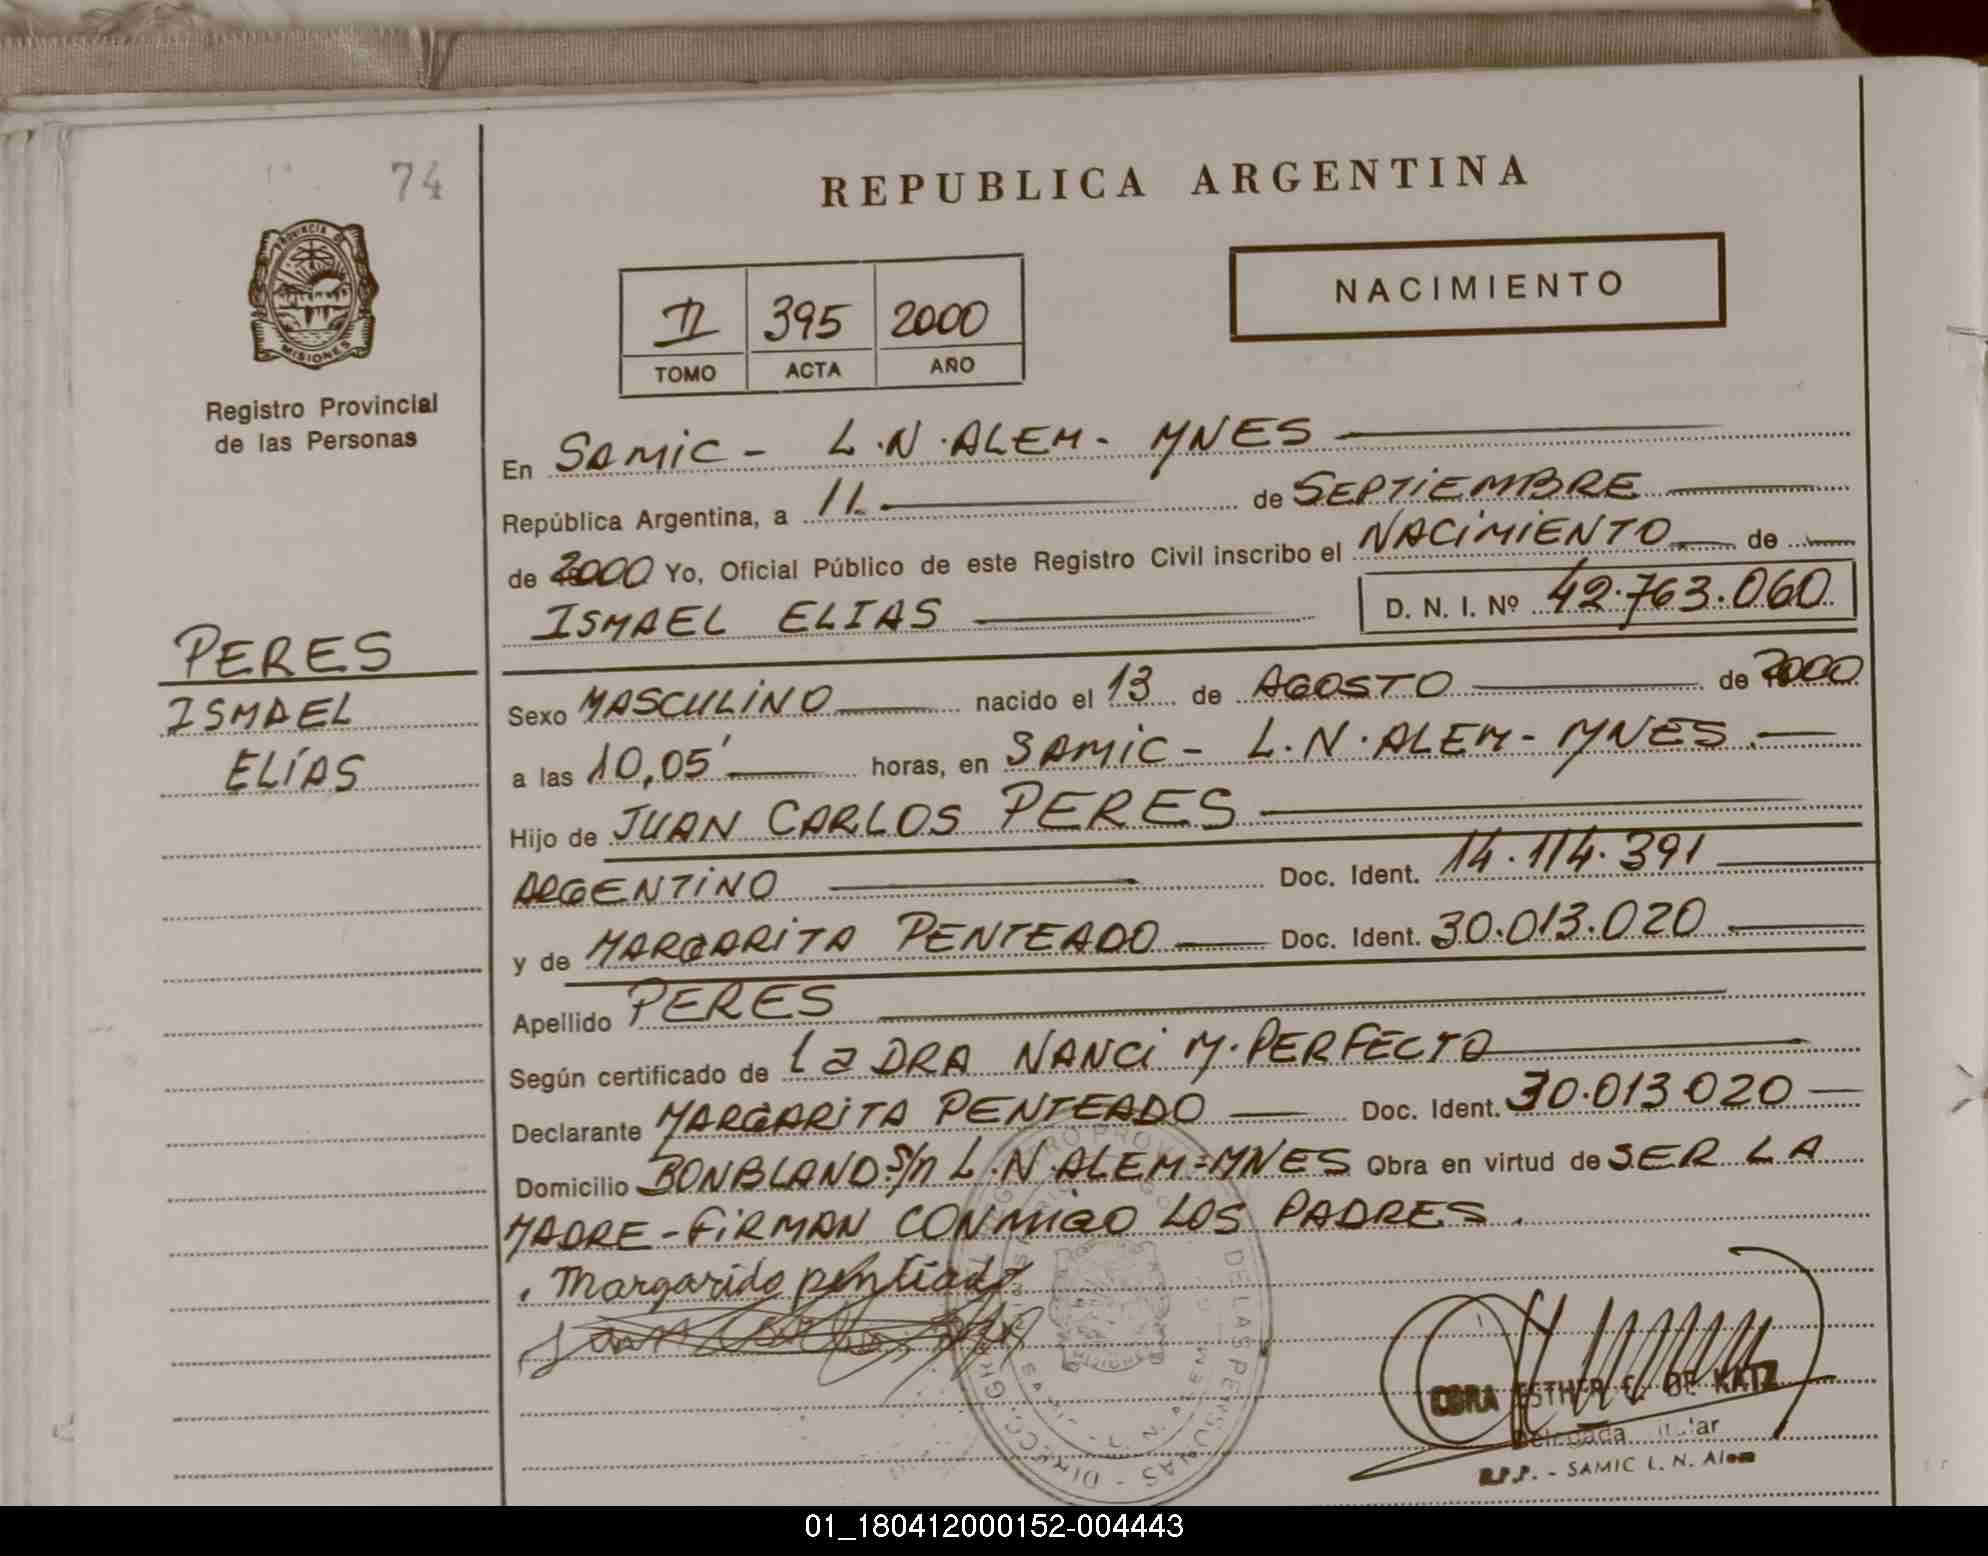 74
REPUBLICA ARGENTINA
PROVINCIA DE
MISIONES
Registro Provincial
de las Personas
II 395 2000
TOMO ACTA AÑO
NACIMIENTO
En SAMIC - L.N.ALEM - MNES
República Argentina, a 11 de SEPTIEMBRE
de 2000 Yo, Oficial Público de este Registro Civil inscribo el NACIMIENTO de
ISMAEL ELIAS D. N. I. Nº 42.763.060
PERES
ISMAEL
ELÍAS
Sexo MASCULINO nacido el 13 de AGOSTO de 2000
a las 10,05' horas, en SAMIC - L.N.ALEM - MNES.
Hijo de JUAN CARLOS PERES
ARGENTINO Doc. Ident. 14.114.391
y de MARGARITA PENTEADO Doc. Ident. 30.013.020
Apellido PERES
Según certificado de La DRA NANCI M. PERFECTO
Declarante MARGARITA PENTEADO Doc. Ident. 30.013.020
Domicilio BONBLAND S/n L.N.ALEM-MNES Obra en virtud de SER LA
MADRE - FIRMAN CONMIGO LOS PADRES.
Margarida pentiado
ESTHER E. DE KATZ
Delegada Titular
R.P.P. - SAMIC L. N. Alem
01_180412000152-004443